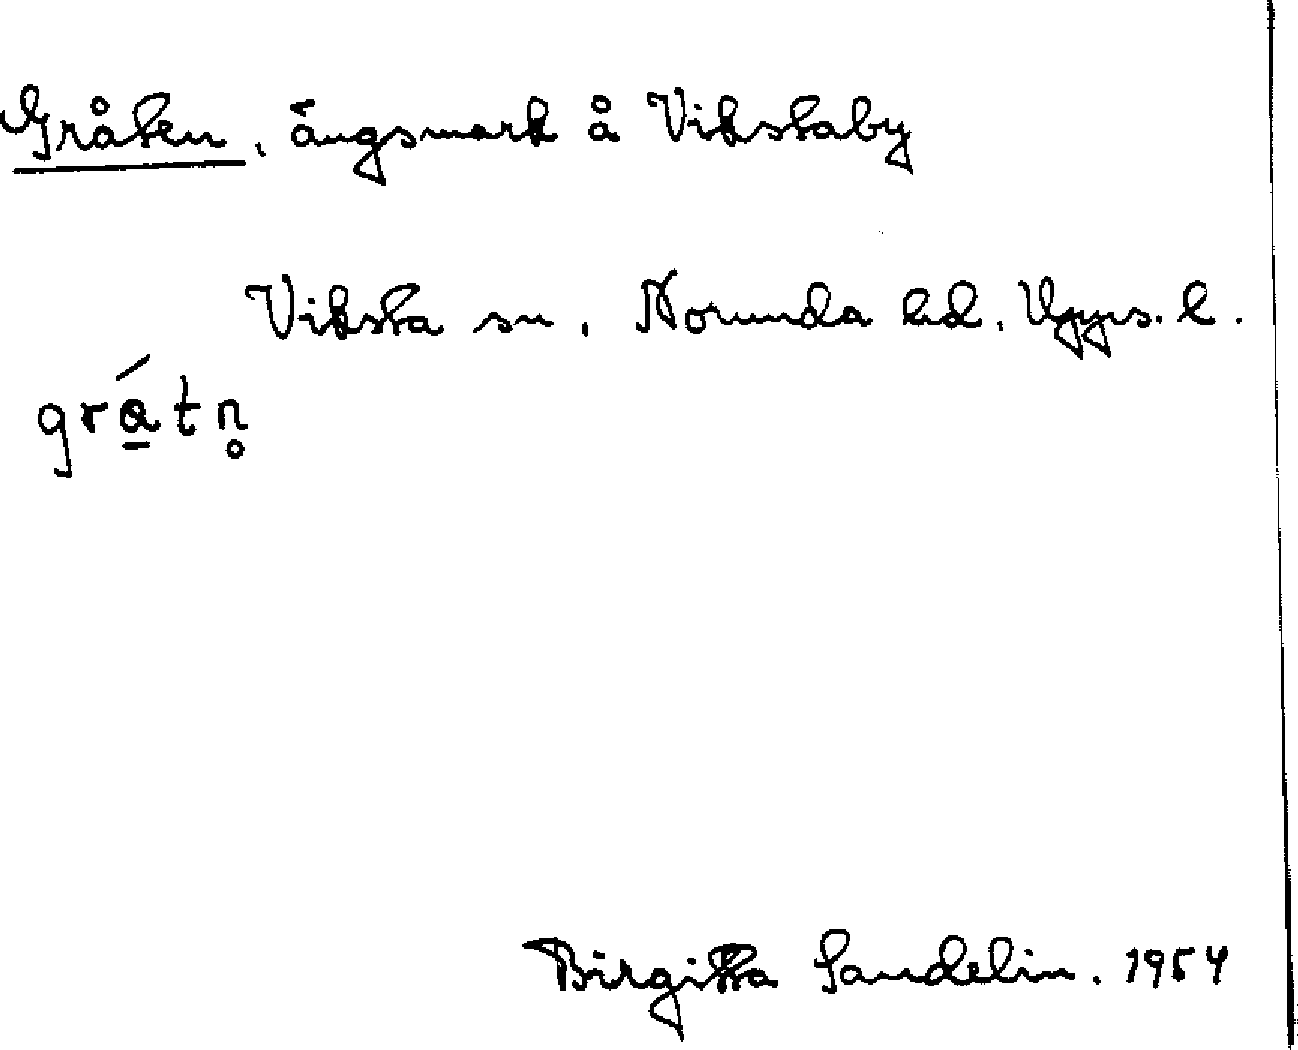 Gråten, ängsmark å Vikstaby
Viksta sn, Norunda hd, Upps. l.
grá̱tn̥
Birgitta Sandelin. 1954